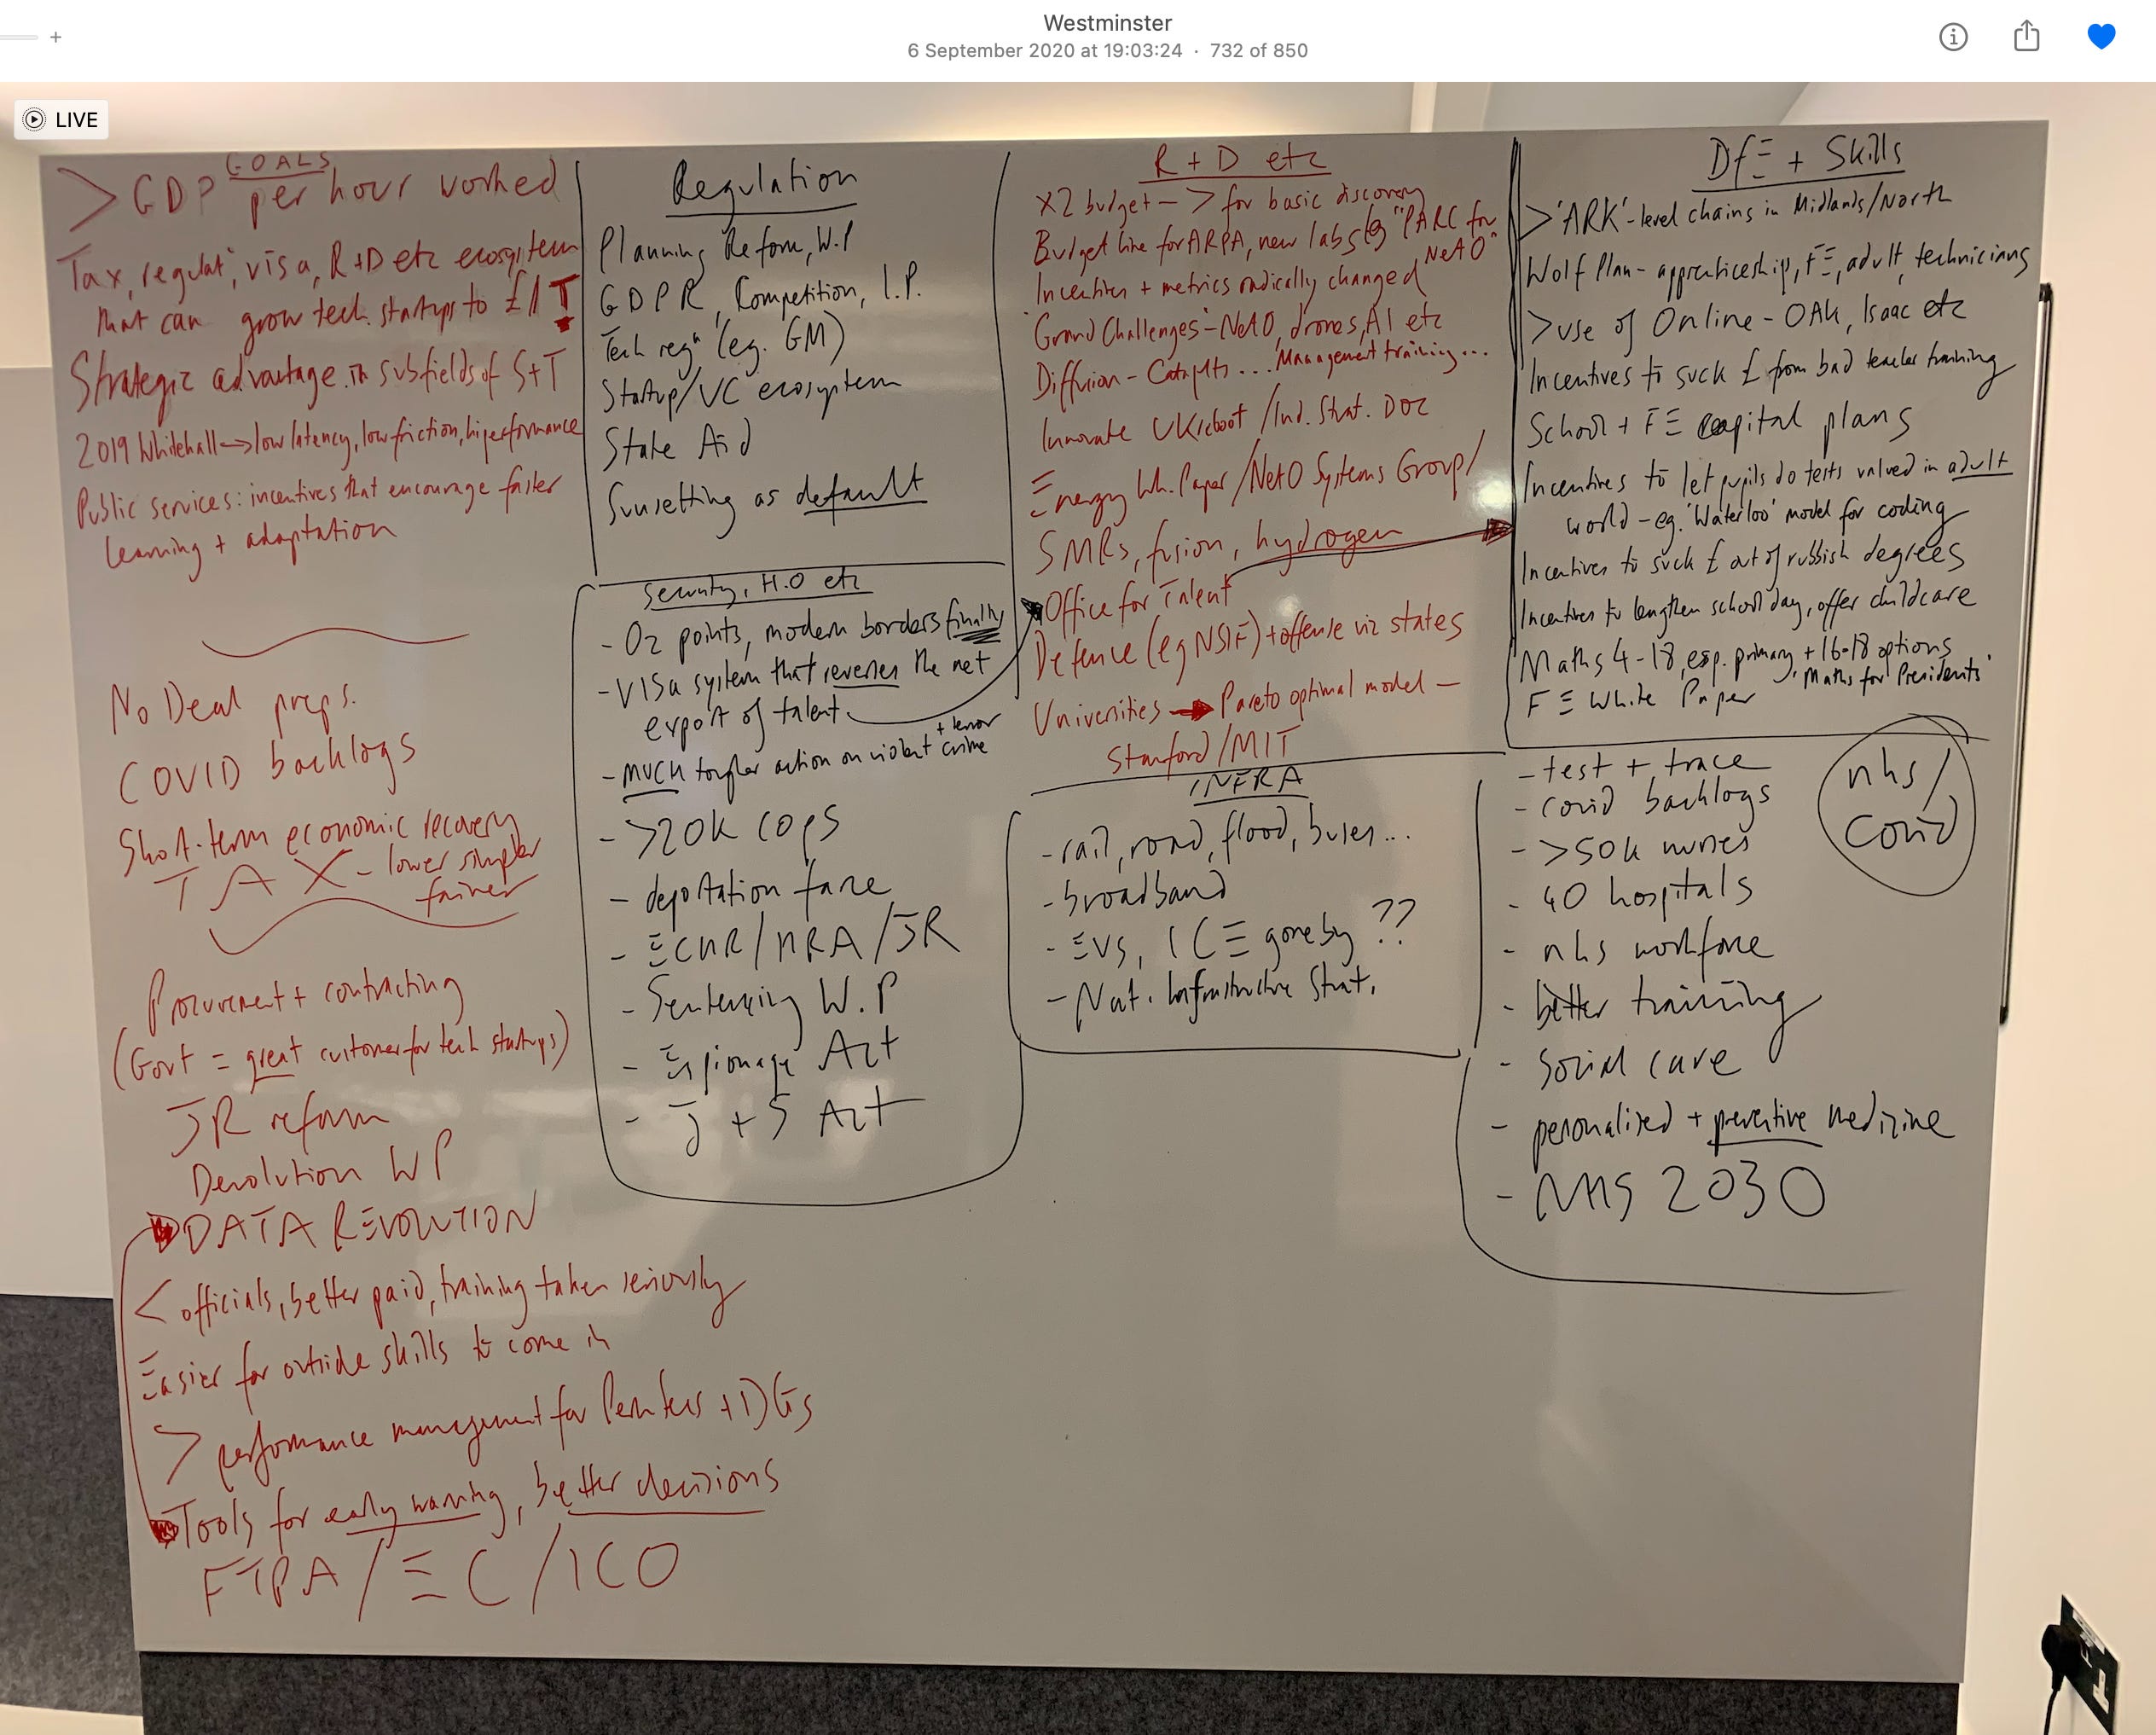 Westminster
6 September 2020 at 19:03:24 · 732 of 850
LIVE
GOALS
> GDP per hour worked
Tax, regulatⁿ, visa, R+D etc ecosystem
that can grow tech startups to £1T
Strategic advantage in subfields of S+T
2019 Whitehall → low latency, low friction, hi performance
Public services: incentives that encourage faster
learning + adaptation
No Deal preps.
COVID backlogs
Short-term economic recovery
TAX - lower simpler
fairer
Procurement + contracting
(Govt = great customer for tech startups)
JR reform
Devolution WP
DATA REVOLUTION
< officials, better paid, training taken seriously
Easier for outside skills to come in
> performance management for Perm Secs + DGs
Tools for early warning, better decisions
FTPA / EC / ICO
Regulation
Planning Reform, W.P
GDPR, Competition, I.P.
Tech regⁿ (eg. GM)
Startup/VC ecosystem
State Aid
Sunsetting as default
Security, H.O etc
- Oz points, modern borders finally
- Visa system that reverses the net
export of talent
- MUCH tougher action on violent + terror
crime
- >20k cops
- deportation farce
- ECHR/HRA/JR
- Sentencing W.P
- Espionage Act
- J + S Act
R + D etc
X2 budget - > for basic discovery
Budget line for ARPA, new labs eg "PARC for
Net0"
Incentives + metrics radically changed
'Grand Challenges' - Net0, drones, AI etc
Diffusion - Catapults ... Management training ...
Innovate UK reboot / Ind. Strat. Doc
Energy Wh. Paper / Net0 Systems Group /
SMRs, fusion, hydrogen
Office for Talent
Defence (eg NSIF) + offense viz states
Universities → Pareto optimal model -
Stanford/MIT
INFRA
- rail, road, flood, buses ...
- broadband
- EVs, ICE gone by ??
- Nat. Infrastructure Strat.
DfE + Skills
> 'ARK'-level chains in Midlands/North
Wolf Plan - apprenticeship, FE, adult, technicians
> use of Online - OAK, Isaac etc
Incentives to suck £ from bad teacher training
School + FE capital plans
Incentives to let pupils do tests valued in adult
world - eg. 'Waterloo' model for coding
Incentives to suck £ out of rubbish degrees
Incentives to lengthen school day, offer childcare
Maths 4-18, esp. primary + 16-18 options
'Maths for Presidents'
FE White Paper
nhs/
Covid
- test + trace
- covid backlogs
- >50k nurses
- 40 hospitals
- nhs workforce
- better training
- Social care
- personalised + preventive medicine
- NHS 2030